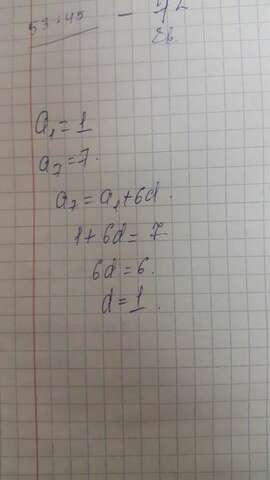 53:45
a₁=1
a₇=7.
a₇=a₁+6d.
1+6d=7
6d=6.
d=1.